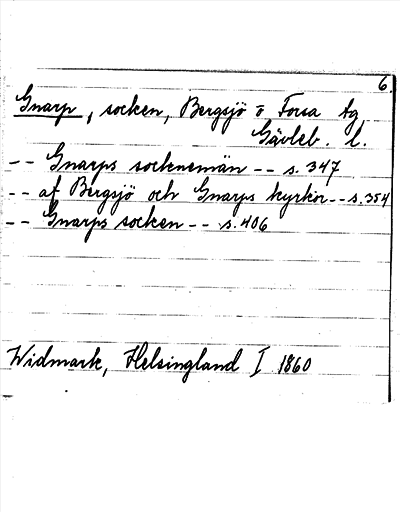 6.
Gnarp, socken, Bergsjö o Forsa tg
Gävleb. l.
-- Gnarps socknemän -- s. 347
-- af Bergsjö och Gnarps kyrkor -- s. 354
-- Gnarps socken -- s. 406
Widmark, Helsingland I 1860